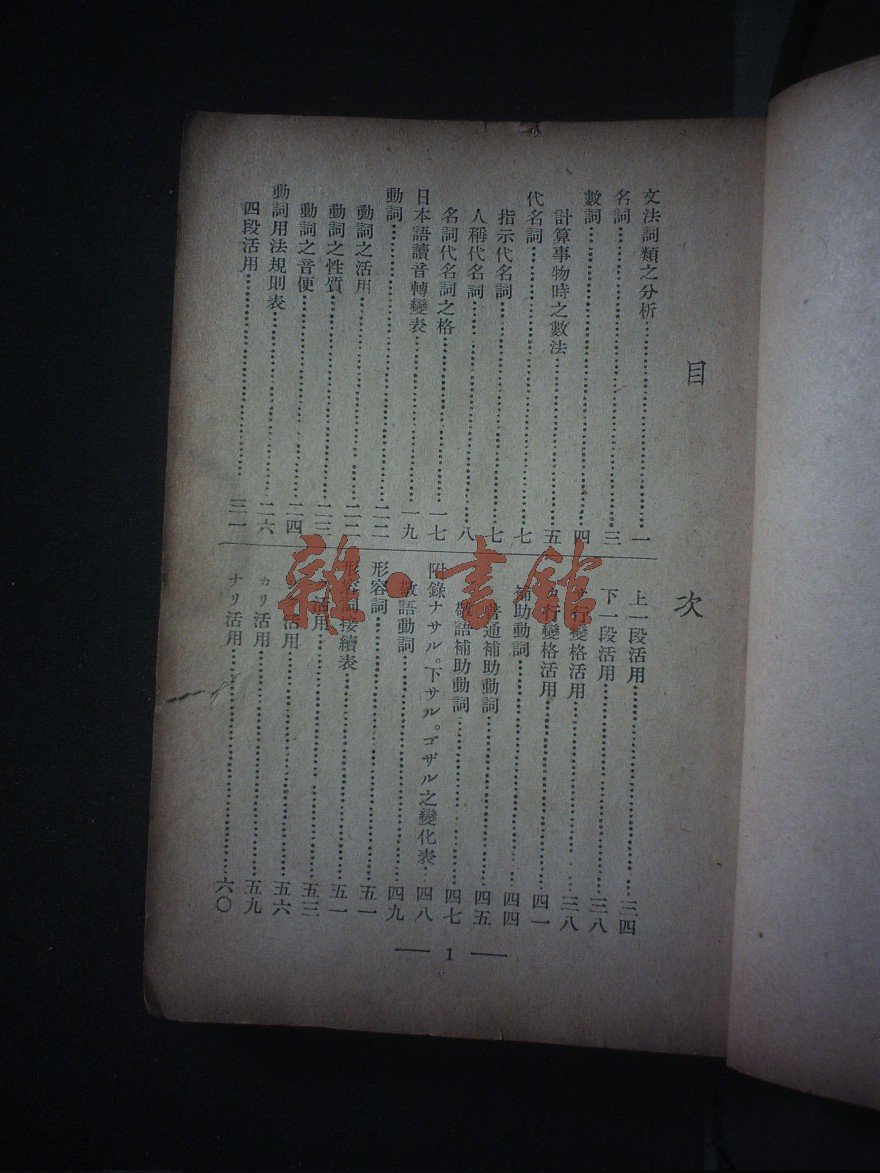 目次
文法詞類之分析…一
名詞…三
數詞…四
計算事物時之數法…五
代名詞…七
指示代名詞…七
人稱代名詞…八
名詞代名詞之格…一七
日本語讀音轉變表…一九
動詞…二二
動詞之活用…二二
動詞之性質…二三
動詞之音便…二四
動詞用法規則表…二六
四段活用…三一
上一段活用…三四
下一段活用…三八
行變格活用…三八
行變格活用…四一
補助動詞…四四
普通補助動詞…四五
敬語補助動詞…四七
附錄ナサル。下サル。ゴザル之變化表…四八
敬語動詞…四九
形容詞…五一
形容詞接續表…五一
活用…五三
活用…五六
カリ活用…五九
ナリ活用…六〇
1
雜·書館